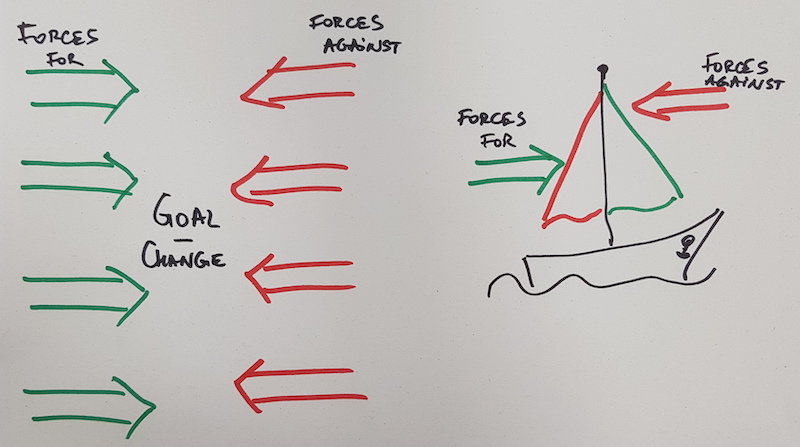 FORCES
FOR
FORCES
AGAINST
GOAL
–
CHANGE
FORCES
FOR
FORCES
AGAINST